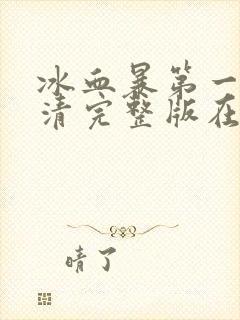 冰血暴第一
清完整版在
晴了